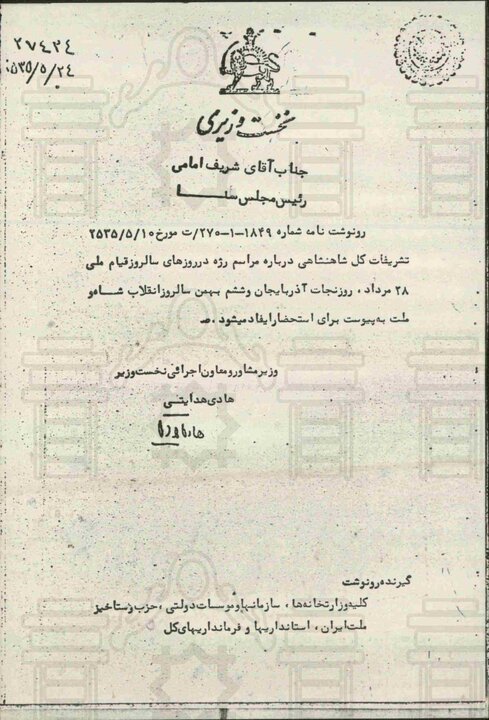 ۲۷۴۲۴
۲۵۳۵/۵/۲۴
نخست وزیری
جناب آقای شریف امامی
رئیس مجلس سنا
رونوشت نامه شماره ۱۸۴۹-۱-۲۷۰/ت مورخ ۲۵۳۵/۵/۱۰
تشریفات کل شاهنشاهی درباره مراسم رژه درروزهای سالروزقیام ملی
۲۸ مرداد ، روزنجات آذربایجان وششم بهمن سالروزانقلاب شاه و
ملت به پیوست برای استحضار ایفاد میشود .
وزیر مشاور و معاون اجرائی نخست وزیر
هادی هدایتی
گیرنده رونوشت
کلیه وزارتخانه ها ، سازمانها و موسسات دولتی ، حزب رستاخیز
ملت ایران ، استانداریها و فرمانداریهای کل